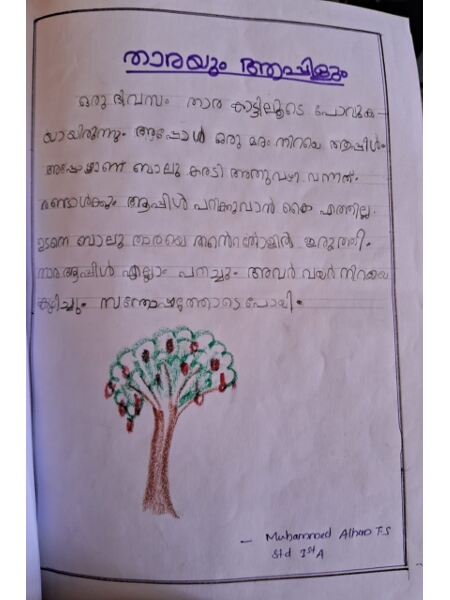 താരയും ആപ്പിളും
ഒരു ദിവസം താര കാട്ടിലൂടെ പോവുക-
യായിരുന്നു. അപ്പോൾ ഒരു മരം നിറയെ ആപ്പിൾ.
അപ്പോഴാണ് ബാലു കരടി അതുവഴി വന്നത്.
രണ്ടാൾക്കും ആപ്പിൾ പറിക്കുവാൻ കൈ എത്തില്ല.
ഉടനെ ബാലു താരയെ തൻ്റെ തോളിൽ ഇരുത്തി.
താര ആപ്പിൾ എല്ലാം പറിച്ചു. അവർ വയർ നിറയെ
കഴിച്ചു. സന്തോഷത്തോടെ പോയി.
- Muhammed T.S
Std 1st A